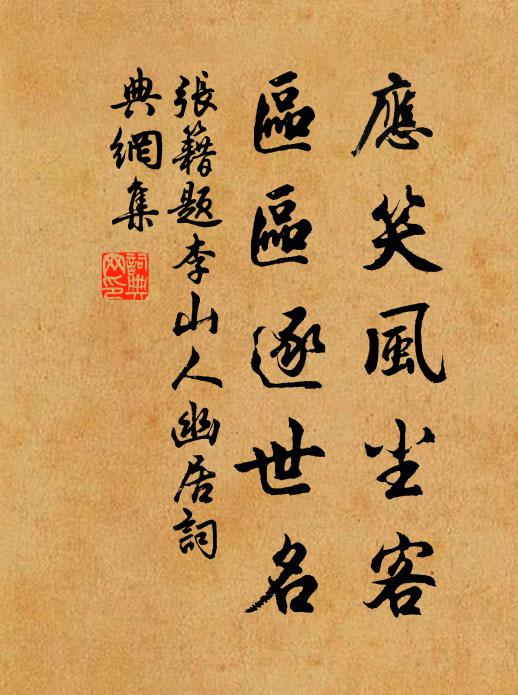 應笑風尘客
區區逐世名
張籍題李山人幽居詞
典網集
詞典
网印